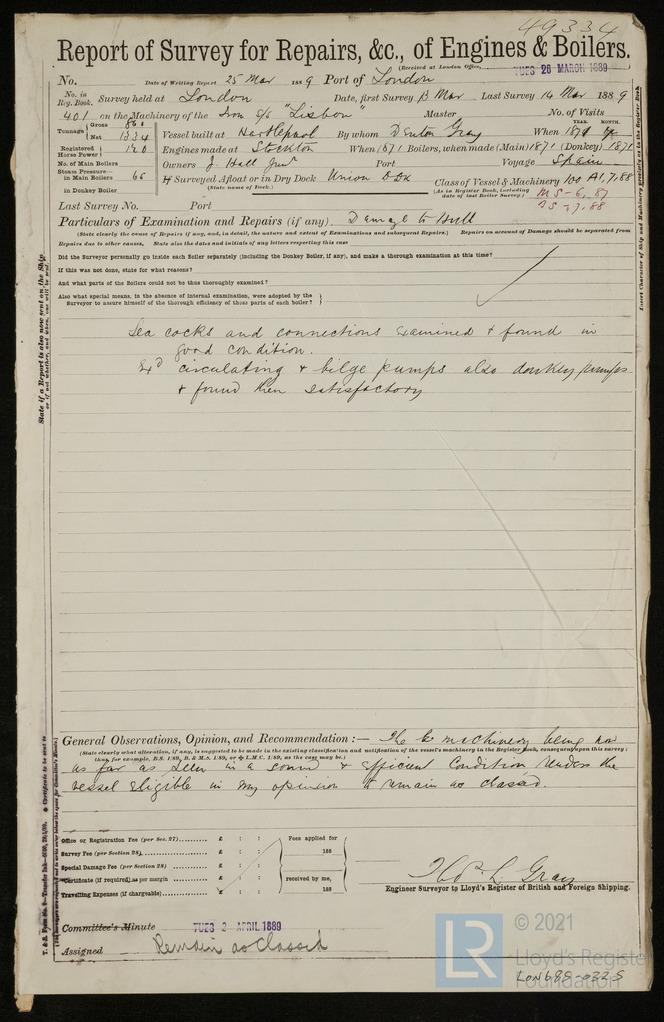 49334
Report of Survey for Repairs, &c., of Engines & Boilers.
(Received at London Office, TUES 26 MARCH 1889
No. Date of Writing Report 25 Mar 1889 Port of London
No. in Reg. Book. Survey held at London Date, first Survey 13 Mar Last Survey 14 Mar 1889
401 on the Machinery of the Iron S/S "Lisbon" Master No. of Visits
Tonnage Gross 861 Net 1334 Vessel built at Hartlepool By whom Denton Gray When YEAR. 1871 MONTH.
Registered Horse Power 120 Engines made at Stockton When 1871 Boilers, when made (Main) 1871 (Donkey) 1871
No. of Main Boilers Owners J. Hall Junr Port Voyage Spain
Steam Pressure— in Main Boilers 66 If Surveyed Afloat or in Dry Dock Union D Dk Class of Vessel & Machinery 100 A1, 7,88
in Donkey Boiler (State name of Dock.) (As in Register Book, including date of last Boiler Survey.) MS-6,87
BS-7,88
Last Survey No. Port
Particulars of Examination and Repairs (if any). Damage to Hull
(State clearly the cause of Repairs if any, and, in detail, the nature and extent of Examinations and subsequent Repairs.) Repairs on account of Damage should be separated from
Repairs due to other causes, State also the dates and initials of any letters respecting this case
Did the Surveyor personally go inside each Boiler separately (including the Donkey Boiler, if any), and make a thorough examination at this time?
If this was not done, state for what reasons?
And what parts of the Boilers could not be thus thoroughly examined?
Also what special means, in the absence of internal examination, were adopted by the
Surveyor to assure himself of the thorough efficiency of those parts of each boiler?
Sea cocks and connections examined & found in
good condition.
Exd circulating & bilge pumps also donkey pumps
& found then satisfactory
State if a Report is also now sent on the Ship
General Observations, Opinion, and Recommendation:— The machinery being now
(State clearly what alteration, if any, is suggested to be made in the existing classification and notification of the vessel's machinery in the Register Book, consequent upon this survey;
thus, for example, B.S. 1/89, B. & M.S. 1/89, or L.M.C. 1/89, as the case may be.)
as far as seen in a sound & efficient condition renders the
vessel eligible in my opinion to remain as classed.
Office or Registration Fee (per Sec. 27) £ : : Fees applied for
Survey Fee (per Section 28) £ : : 188
Special Damage Fee (per Section 28) £ : :
Certificate (if required) as per margin £ : : received by me,
Travelling Expenses (if chargeable) £ : : 188
Thos L. Gray
Engineer Surveyor to Lloyd's Register of British and Foreign Shipping.
Committee's Minute TUES 2 APRIL 1889
Assigned Remain as Classed
© 2021
LR Lloyd's Register
Foundation
LON689-0322S